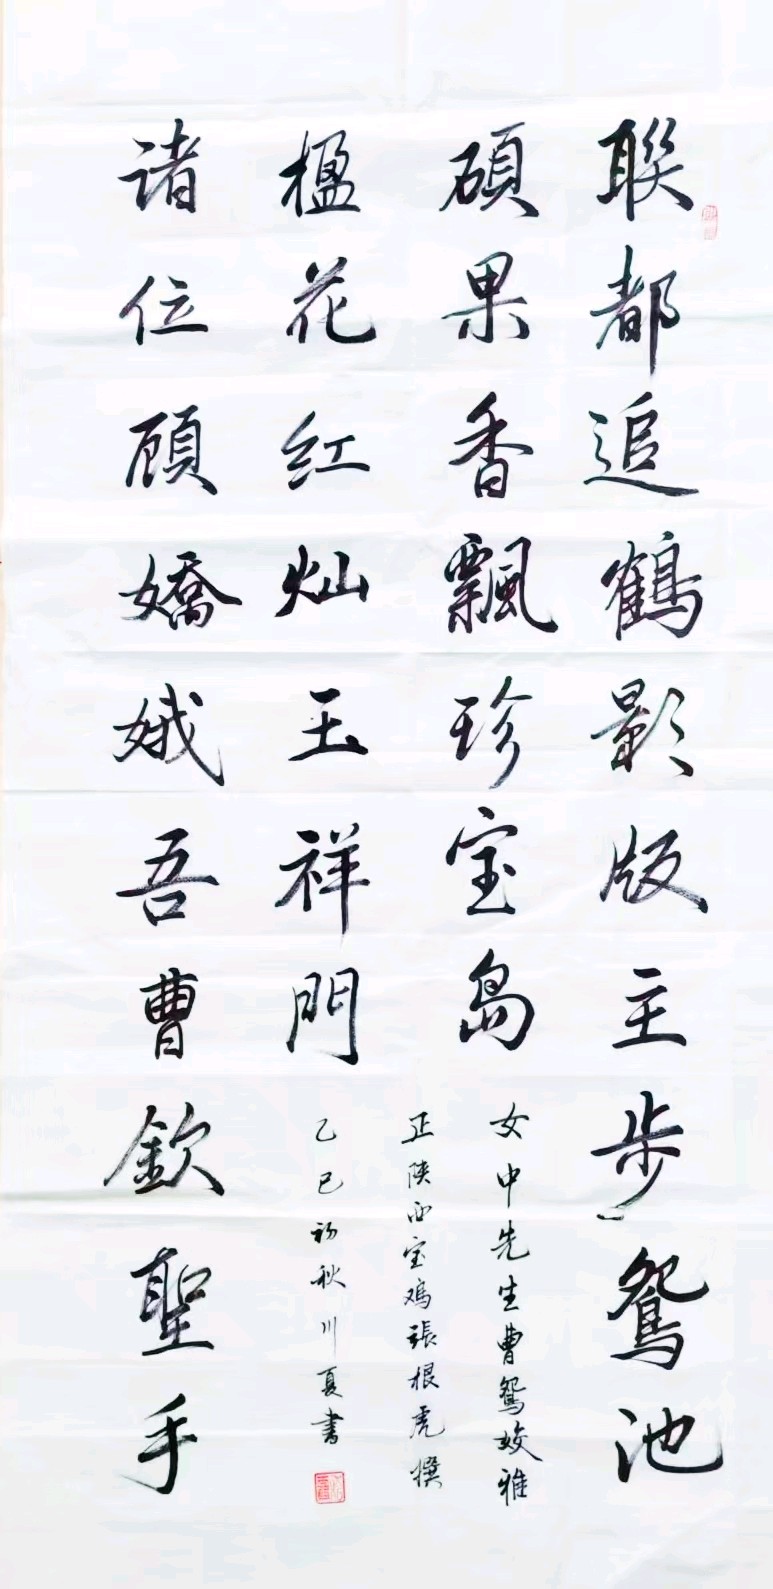 聯都追鶴影版主步鴛池
碩果香飄珍宝岛
诸位顾嬌娥吾曹欽聖手
楹花红灿玉祥門
女中先生曹鴛姣雅
正陕西宝鸡張根虎撰
乙巳初秋川夏書